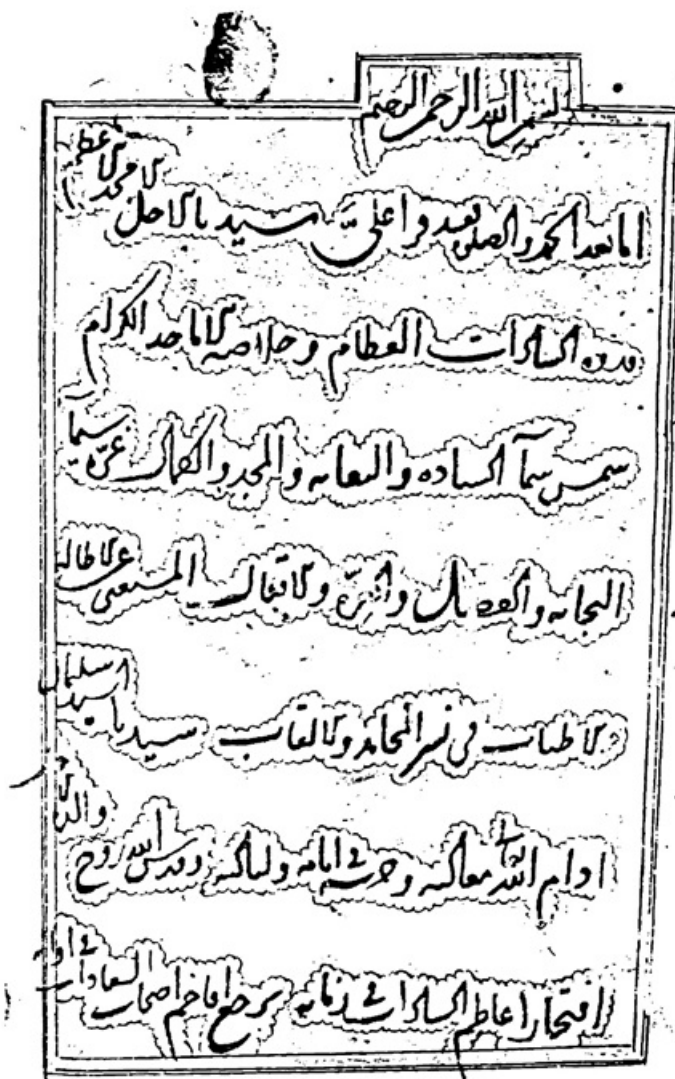 بسم الله الرحمن الرحیم
اما بعد الحمد والصلوة فقد واعلی سیدنا الاجل الامجد الاعظم
قدوة السادات العظام وخلاصة الاماجد الکرام
شمس سمآ السیادة والنقابة والمجد والکمال غرة سیما
النجابة والفضل والعزة والاقبال المستغنی عن الاطالة
والاطناب فی نشر المحامد والالقاب سیدنا السید سلیمان
ادام الله تعالی معالیه وحرسه فی ایامه ولیالیه وقدس الله روح والده
افتخار اعاظم السادات فی زمانه مرجع افاخم اصحاب السعادات فی اوانه